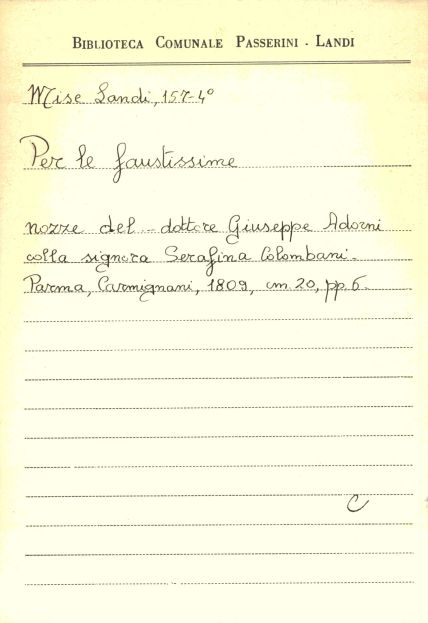 BIBLIOTECA COMUNALE PASSERINI - LANDI
Misc Landi, 157-4°
Per le faustissime
nozze del - dottore Giuseppe Adorni
colla signora Serafina Colombani.
Parma, Carmignani, 1809, cm 20, pp. 6.
C